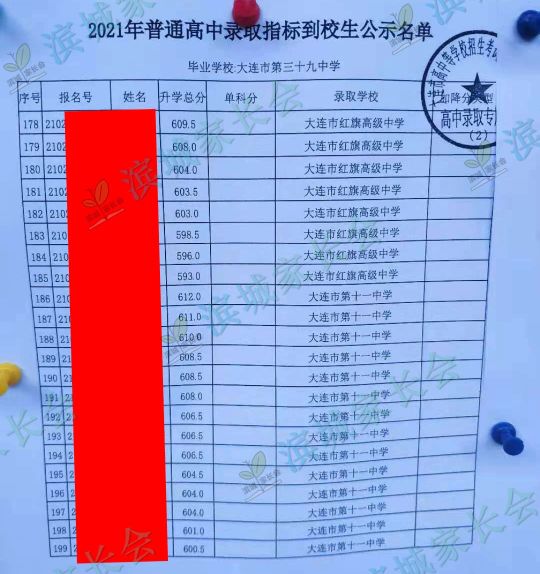 2021年普通高中录取指标到校生公示名单
毕业学校:大连市第三十九中学
序号 报名号 姓名 升学总分 单科分 录取学校 加降分类型
178 2102 609.5 大连市红旗高级中学
179 2102 608.0 大连市红旗高级中学
180 2102 604.0 大连市红旗高级中学
181 2102 603.5 大连市红旗高级中学
182 2102 603.0 大连市红旗高级中学
183 2102 598.5 大连市红旗高级中学
184 2102 596.0 大连市红旗高级中学
185 2102 593.0 大连市红旗高级中学
186 210 612.0 大连市第十一中学
187 210 611.0 大连市第十一中学
188 210 610.0 大连市第十一中学
189 21 608.5 大连市第十一中学
190 21 608.5 大连市第十一中学
191 21 608.0 大连市第十一中学
192 2 606.5 大连市第十一中学
193 2 606.5 大连市第十一中学
194 2 606.5 大连市第十一中学
195 2 604.5 大连市第十一中学
196 2 604.0 大连市第十一中学
197 2 604.0 大连市第十一中学
198 2 601.0 大连市第十一中学
199 2 600.5 大连市第十一中学
大连市高中等学校招生考
高中录取专
(2)
滨城家长会